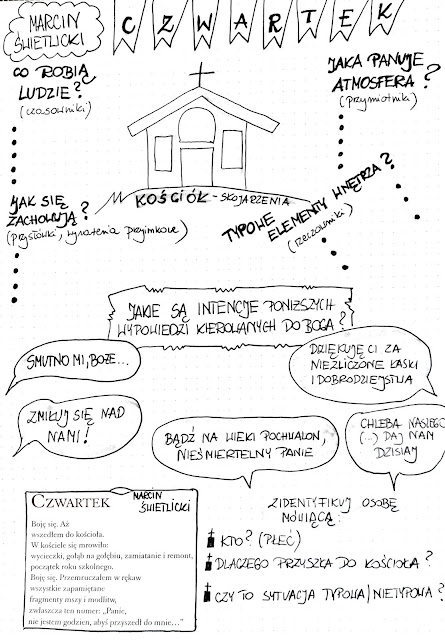 MARCIN
ŚWIETLICKI
CZWARTEK
CO ROBIĄ
LUDZIE?
(czasowniki)
JAKA PANUJE
ATMOSFERA?
(przymiotniki)
JAK SIĘ
ZACHOWUJĄ?
(przysłówki, wyrażenia przyimkowe)
KOŚCIÓŁ - SKOJARZENIA
TYPOWE ELEMENTY WNĘTRZA?
(rzeczowniki)
JAKIE SĄ INTENCJE PONIŻSZYCH
WYPOWIEDZI KIEROWANYCH DO BOGA?
SMUTNO MI, BOŻE...
DZIĘKUJĘ CI ZA
NIEZLICZONE ŁASKI
I DOBRODZIEJSTWA
ZMIŁUJ SIĘ NAD
NAMI!
BĄDŹ NA WIEKI POCHWALON,
NIEŚMIERTELNY PANIE
CHLEBA NASZEGO
(...) DAJ NAM
DZISIAJ
CZWARTEK
MARCIN
ŚWIETLICKI
Boję się. Aż
wszedłem do kościoła.
W kościele się mrowiło:
wycieczki, gołąb na gołębiu, zamiatanie i remont,
początek roku szkolnego.
Boję się. Przemruczałem w rękaw
wszystkie zapamiętane
fragmenty mszy i modlitw,
zwłaszcza ten numer: „Panie,
nie jestem godzien, abyś przyszedł do mnie…"
ZIDENTYFIKUJ OSOBĘ
MÓWIĄCĄ:
KTO? (PŁEĆ)
DLACZEGO PRZYSZŁA DO KOŚCIOŁA?
CZY TO SYTUACJA TYPOWA/NIETYPOWA?